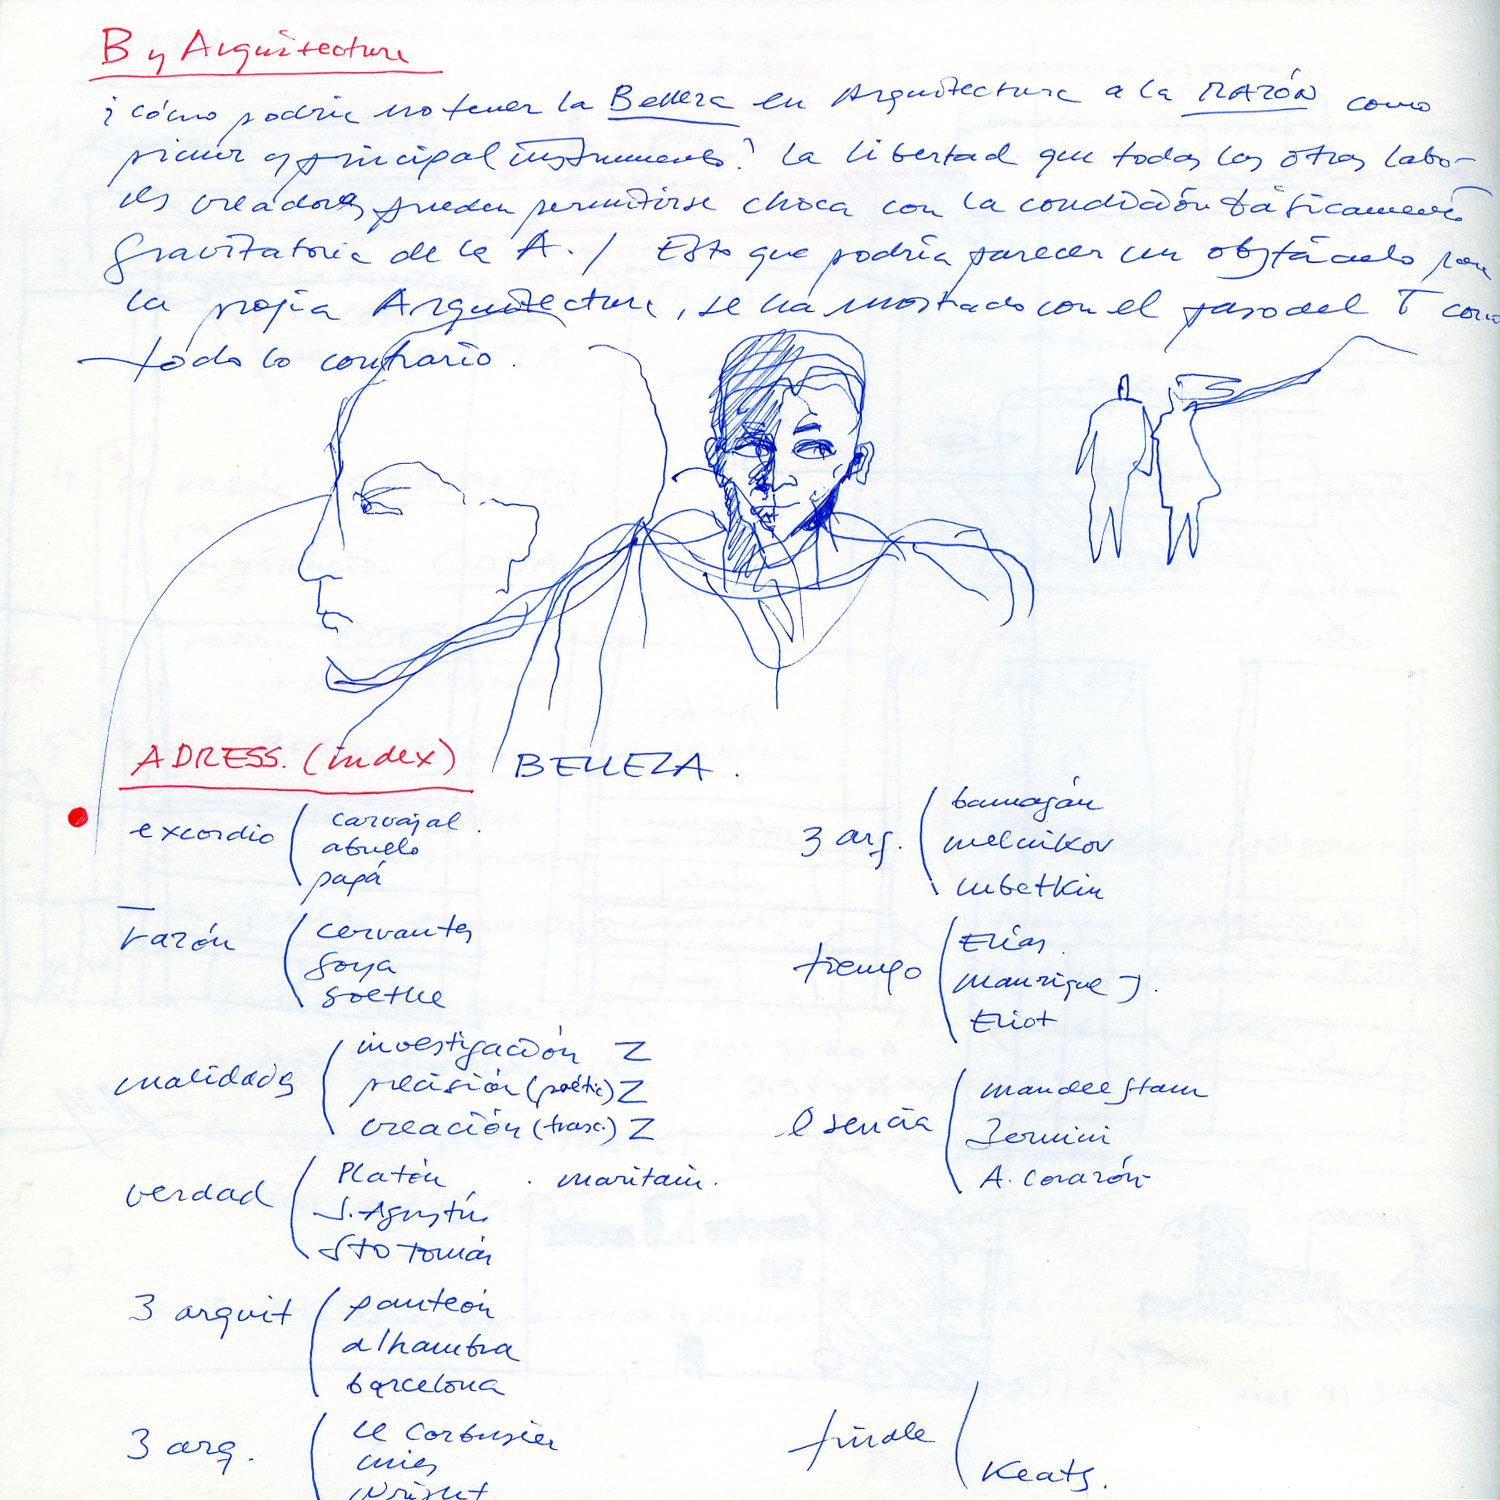 B y Arquitectura
¿cómo podría no tener la Belleza en Arquitectura a la RAZÓN como
primer y principal instrumento? La libertad que todas las otras labo-
res creadoras pueden permitirse choca con la condición básicamente
gravitatoria de la A. / Esto que podría parecer un obstáculo para
la propia Arquitectura, se ha mostrado con el paso del T como
todo lo contrario.
ADRESS. (index) BELLEZA.
excordio ( carvajal.
abuelo
papá
razón ( cervantes
goya
goethe
cualidades ( investigación Z
precisión (poétic) Z
creación (trasc.) Z
verdad ( Platón . maritain.
S. Agustín
Sto Tomás
3 arquit ( panteón
alhambra
barcelona
3 arq. ( Le Corbusier
mies
Wright
3 arq. ( barragán
melnikov
lubetkin
tiempo ( Elías.
manrique J.
Eliot
esencia ( mandelstam
Bernini
A. Corazón
finale ( Keats.